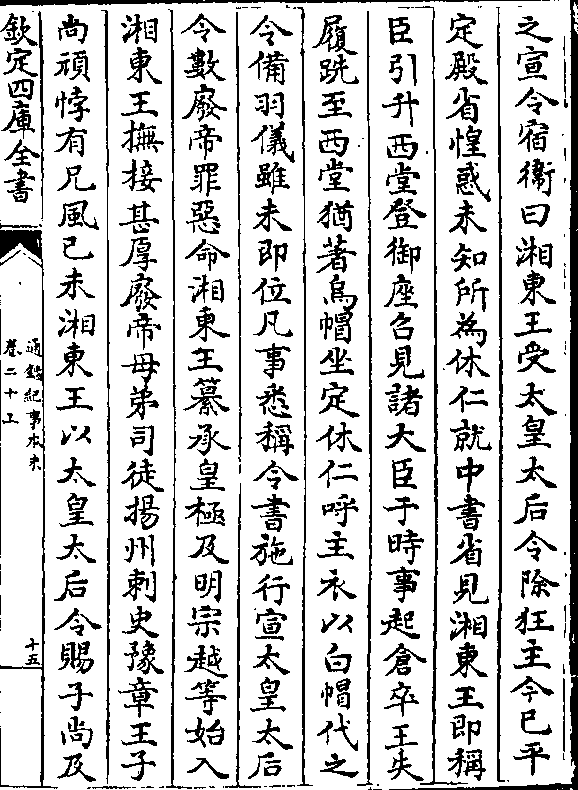 之宣令宿衞曰湘東王受太皇太后令除狂主今已平
定殿省惶惑未知所為休仁就中書省見湘東王即稱
臣引升西堂登御座召見諸大臣于時事起倉卒王失
履跣至西堂猶著烏帽坐定休仁呼主衣以白帽代之
令備羽儀雖未即位凡事悉稱令書施行宣太皇太后
令數廢帝罪惡命湘東王纂承皇極及明宗越等始入
湘東王撫接甚厚廢帝母弟司徒揚州刺史豫章王子
尚頑悖有兄風己未湘東王以太皇太后令賜子尚及
欽定四庫全書
通鑑紀事本末
卷二十上
十五